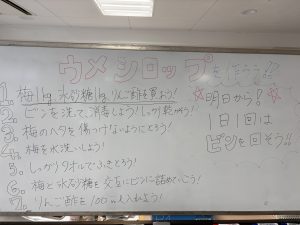 ウメシロップを作ろう!!
1. 梅1kg、氷砂糖1kg、りんご酢を買おう!
2. ビンを洗って、消毒しよう!しっかり乾かそう!
3. 梅のヘタを傷つけないようにとろう!
4. 梅を水洗いしよう!
5. しっかりタオルでふきとろう!
6. 梅と氷砂糖を交互にビンに詰めていこう!
7. りんご酢を100mL入れよう!
☆明日から!☆
1日1回は
ビンを回そう!!